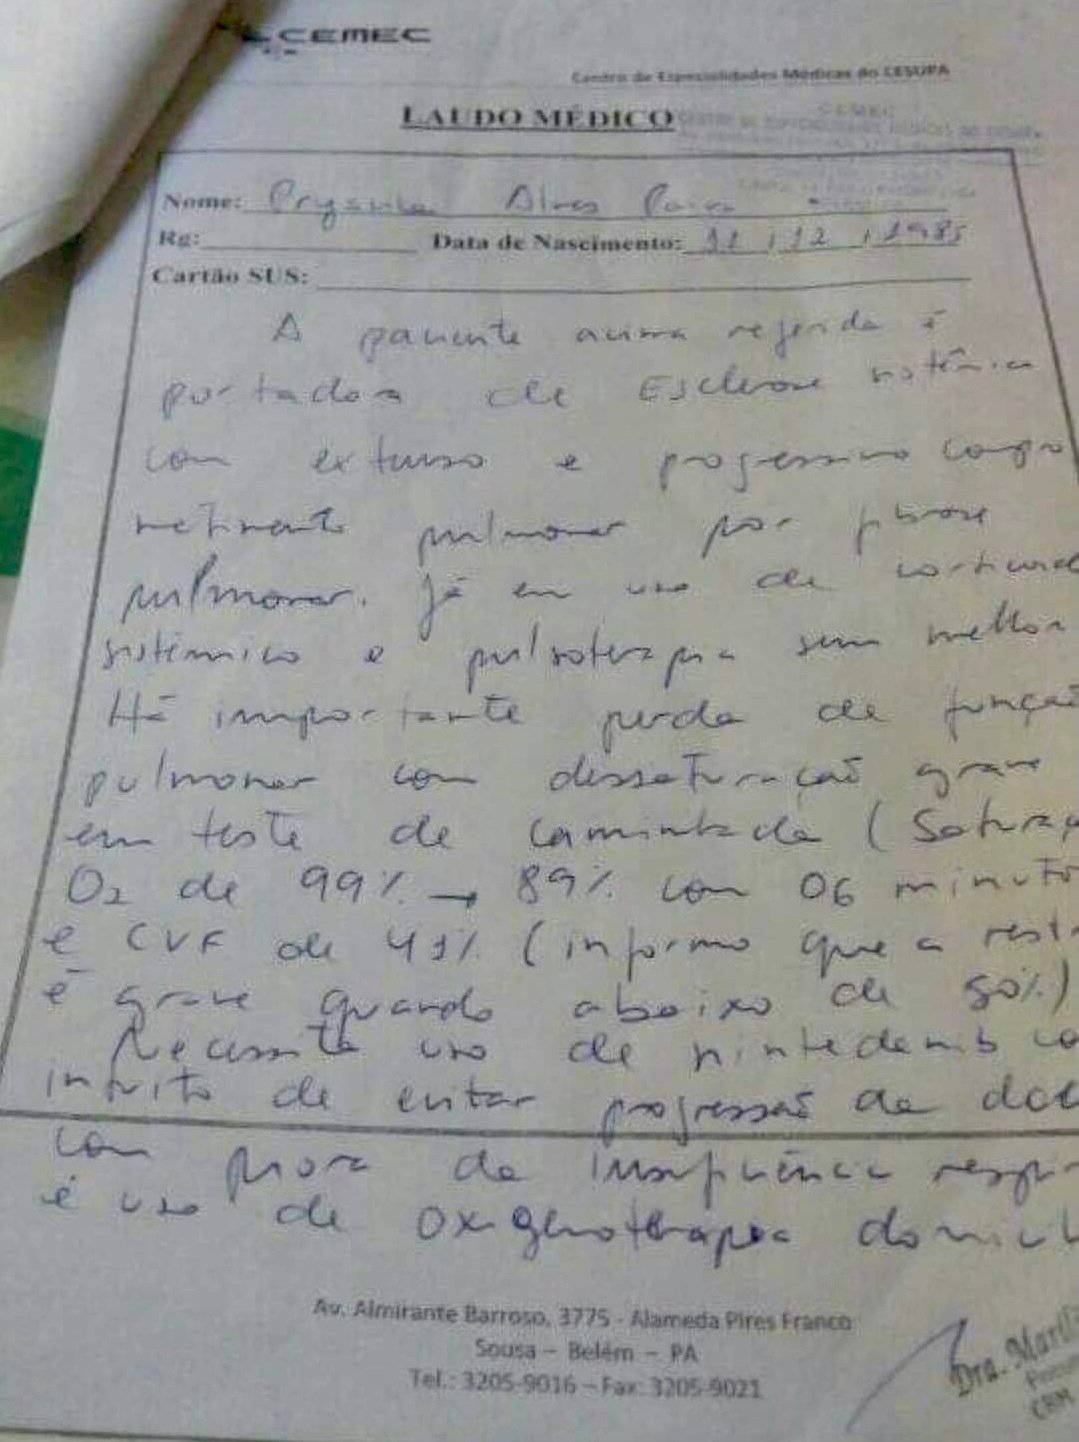 CEMEC
Centro de Especialidades Médicas do CESUPA
LAUDO MÉDICO
Nome: Alves
Rg: Data de Nascimento: 31 / 12 / 1985
Cartão SUS:
A paciente acima referida é
portadora de Esclerose sistêmica
com extenso e progressivo compro
metimento pulmonar por fibrose
pulmonar. Já em uso de corticoid
sistêmico e pulsoterapia sem melhor
Há importante perda de função
pulmonar com dessaturação grave
em teste de caminhada (Saturaç
O2 de 99% → 89% com 06 minuto
e CVF de 41% (informo que a rest
é grave quando abaixo de 50%)
Necessita uso de nintedanib co
intuito de evitar progressão da doe
com piora da insuficiência respir
e uso de oxigenoterapia domicil
Av. Almirante Barroso, 3775 - Alameda Pires Franco
Sousa – Belém – PA
Tel.: 3205-9016 – Fax: 3205-9021
Dra.
CRM